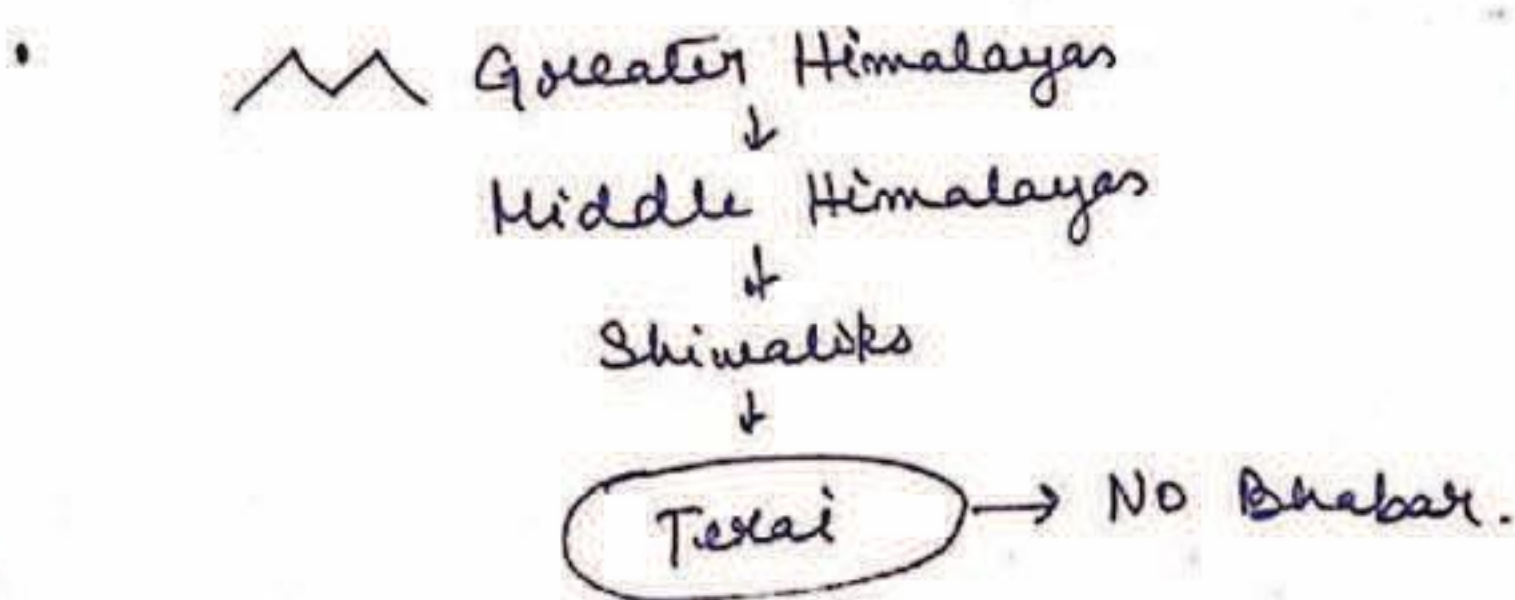 • Greater Himalayas
↓
Middle Himalayas
↓
Shiwaliks
↓
Terai → No Bhabar.